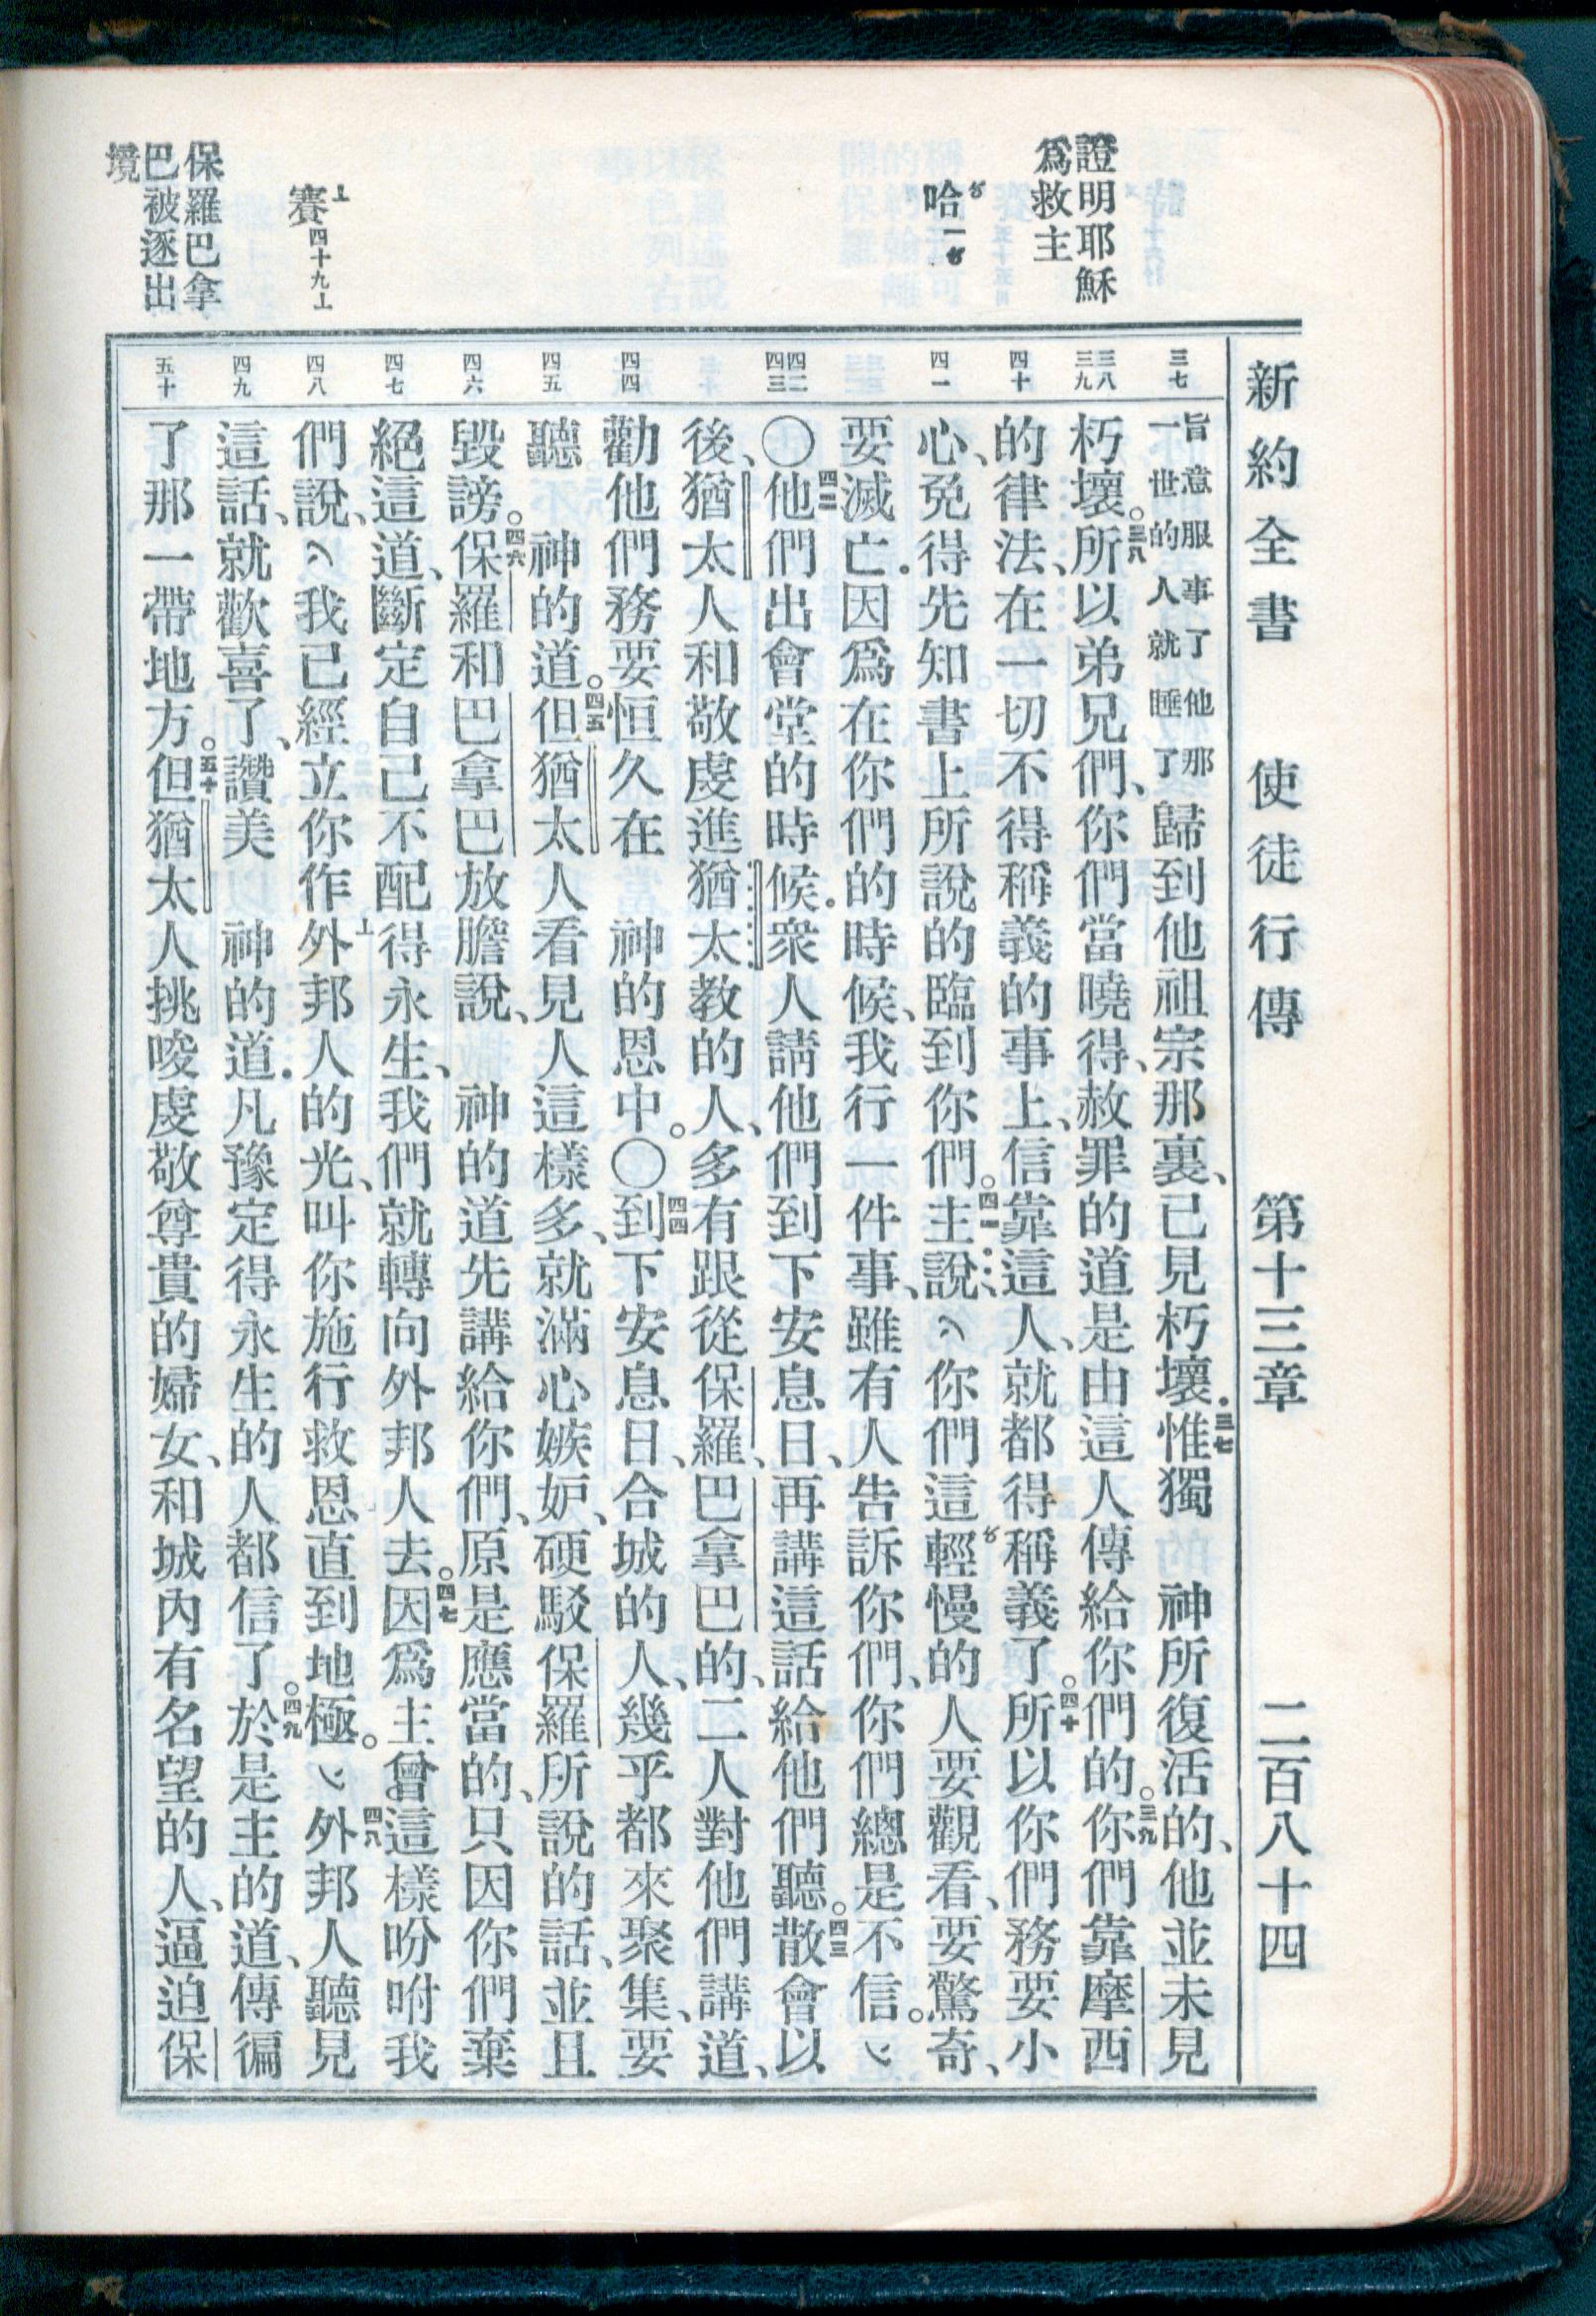 新約全書 使徒行傳 第十三章 二百八十四
證明耶穌
爲救主
哈一
賽四十九
保羅巴拿
巴被逐出
境
三七
三八
三九
四十
四一
四二
四三
四四
四五
四六
四七
四八
四九
五十
旨意服事了他那
一世的人就睡了
歸到他祖宗那裏、已見朽壞.三七惟獨 神所復活的、他並未見
朽壞。三八所以弟兄們、你們當曉得、赦罪的道是由這人傳給你們的。三九你們靠摩西
的律法、在一切不得稱義的事上、信靠這人、就都得稱義了。四十所以你們務要小
心、免得先知書上所說的臨到你們。四一主說、你們這輕慢的人要觀看、要驚奇、
要滅亡.因爲在你們的時候、我行一件事、雖有人告訴你們、你們總是不信。
〇四二他們出會堂的時候.衆人請他們到下安息日、再講這話給他們聽。四三散會以
後、猶太人和敬虔進猶太教的人、多有跟從保羅、巴拿巴的、二人對他們講道、
勸他們務要恒久在 神的恩中。〇四四到下安息日、合城的人、幾乎都來聚集、要
聽 神的道。四五但猶太人看見人這樣多、就滿心嫉妒、硬駁保羅所說的話、並且
毀謗。四六保羅和巴拿巴放膽說、 神的道先講給你們、原是應當的、只因你們棄
絕這道、斷定自己不配得永生、我們就轉向外邦人去。四七因爲主曾這樣吩咐我
們說、我已經立你作外邦人的光、叫你施行救恩直到地極。四八外邦人聽見
這話、就歡喜了、讚美 神的道.凡豫定得永生的人都信了。四九於是主的道、傳徧
了那一帶地方。五十但猶太人挑唆虔敬尊貴的婦女、和城內有名望的人、逼迫保